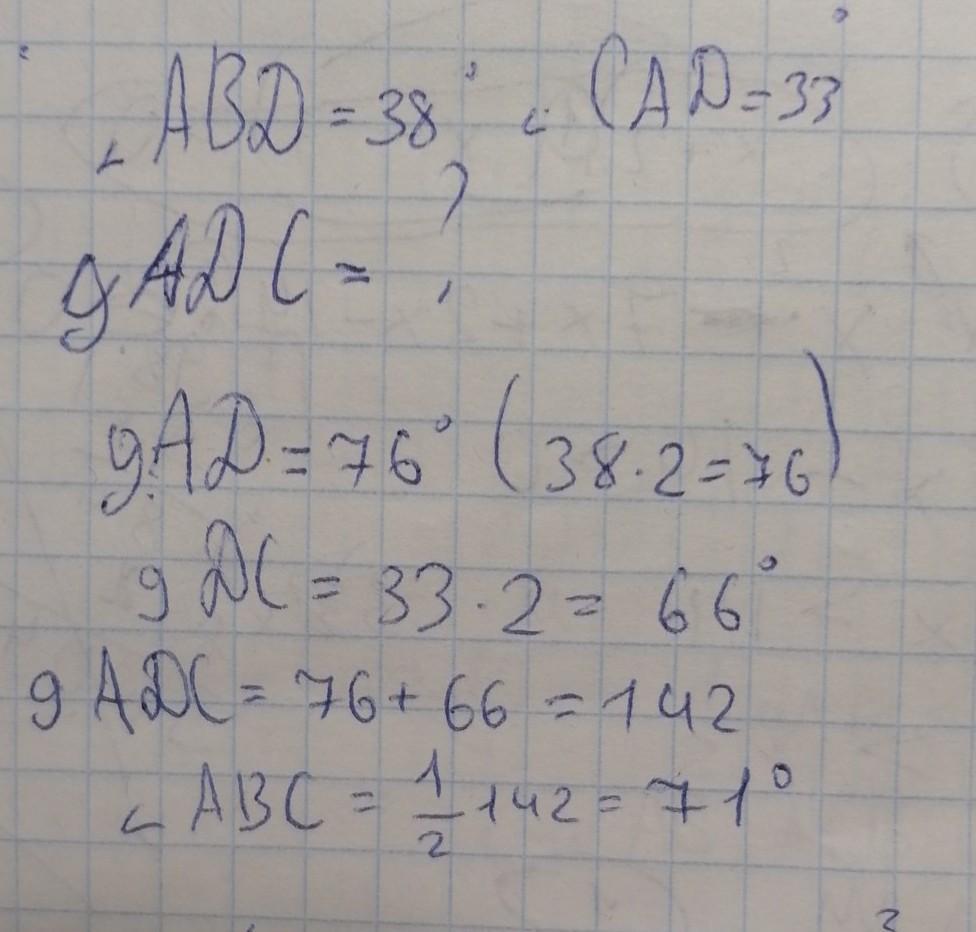 ∠ABD = 38° ∠CAD = 33°
gADC = ?
gAD = 76° (38·2=76)
gDC = 33·2 = 66°
gADC = 76 + 66 = 142
∠ABC = 1/2 142 = 71°